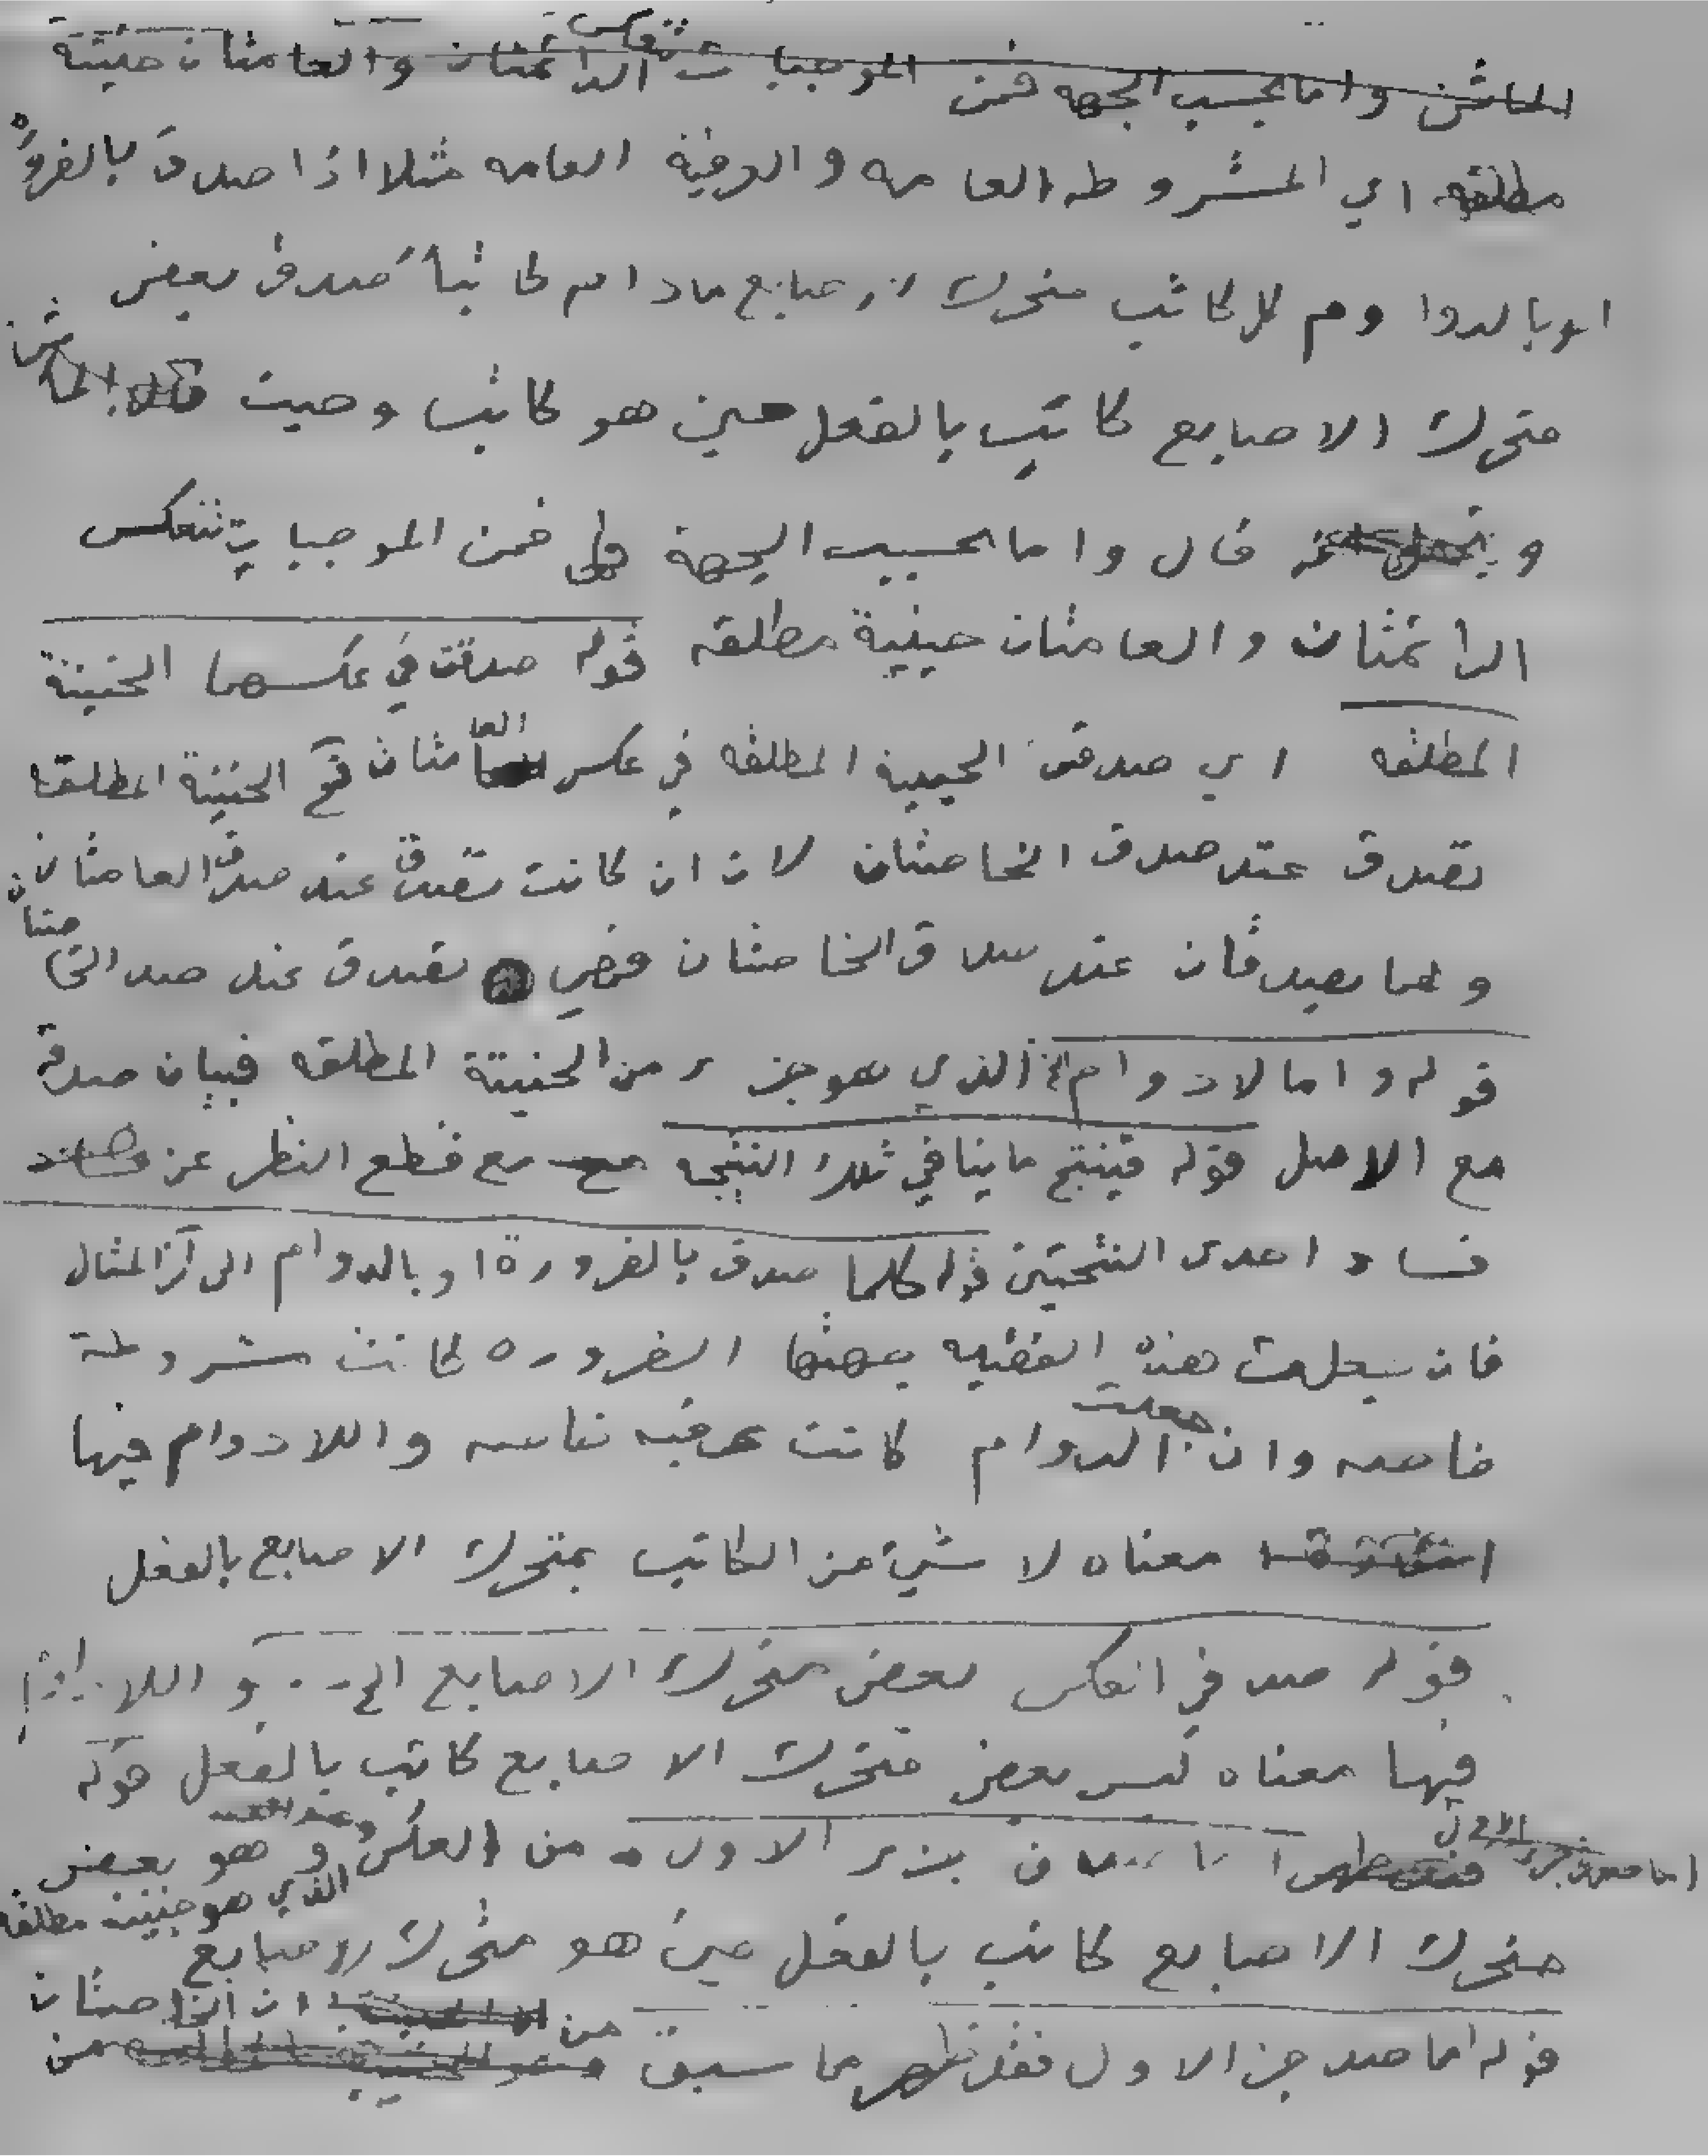 الماتن واما بحسب الجهه فمن الموجبات تنعكس الدائمتان والعامتان حينية
مطلقه اي المشروطه العامه والعرفية العامه مثلا اذا صدق بالضرورة
او بالدوام كل كاتب متحرك الاصابع مادام كاتبا صدق بعض
متحرك الاصابع كاتب بالفعل حين هو كاتب وحيث قال الماتن
و قال واما بحسب الجهة فمن الموجبات تنعكس
الدائمتان والعامتان حينية مطلقه قوله صدقت في عكسها الحينية
المطلقه اي صدقت الحينية المطلقه في عكس العامتان الحينية المطلقة
تصدق عند صدق الخاصتان لان ان كانت تصدق عند صدق العامتان
وهما يصدقان عند صدق الخاصتان فهي تصدق عند صدق الخاصتان
قوله واما لا دوام الخ الذي هو جزء من الحينية المطلقه فبيان صدقه
مع الاصل قوله فينتج ما ينافي تلك النتيجه مع قطع النظر عن
فساد احدى النتيجتين قوله كلما صدق بالضرورة او بالدوام الى آخر المثال
فان جعلت هذه القضيه جهتها الضروره كانت مشروطة
خاصه وان جعلت الدوام كانت عرفيه خاصه واللادوام فيها
معناه لا شيء من الكاتب بمتحرك الاصابع بالفعل
قوله صدق في العكس بعض متحرك الاصابع الخ واللادوام
فيها معناه ليس بعض متحرك الاصابع كاتب بالفعل قوله
اما صدق جزء الاول من العكس وهو بعض
الذي هو حينية مطلقه
متحرك الاصابع كاتب بالفعل حين هو متحرك الاصابع
قوله اما صدق جزء الاول فقد ظهر مما سبق من ان الخاصتان من